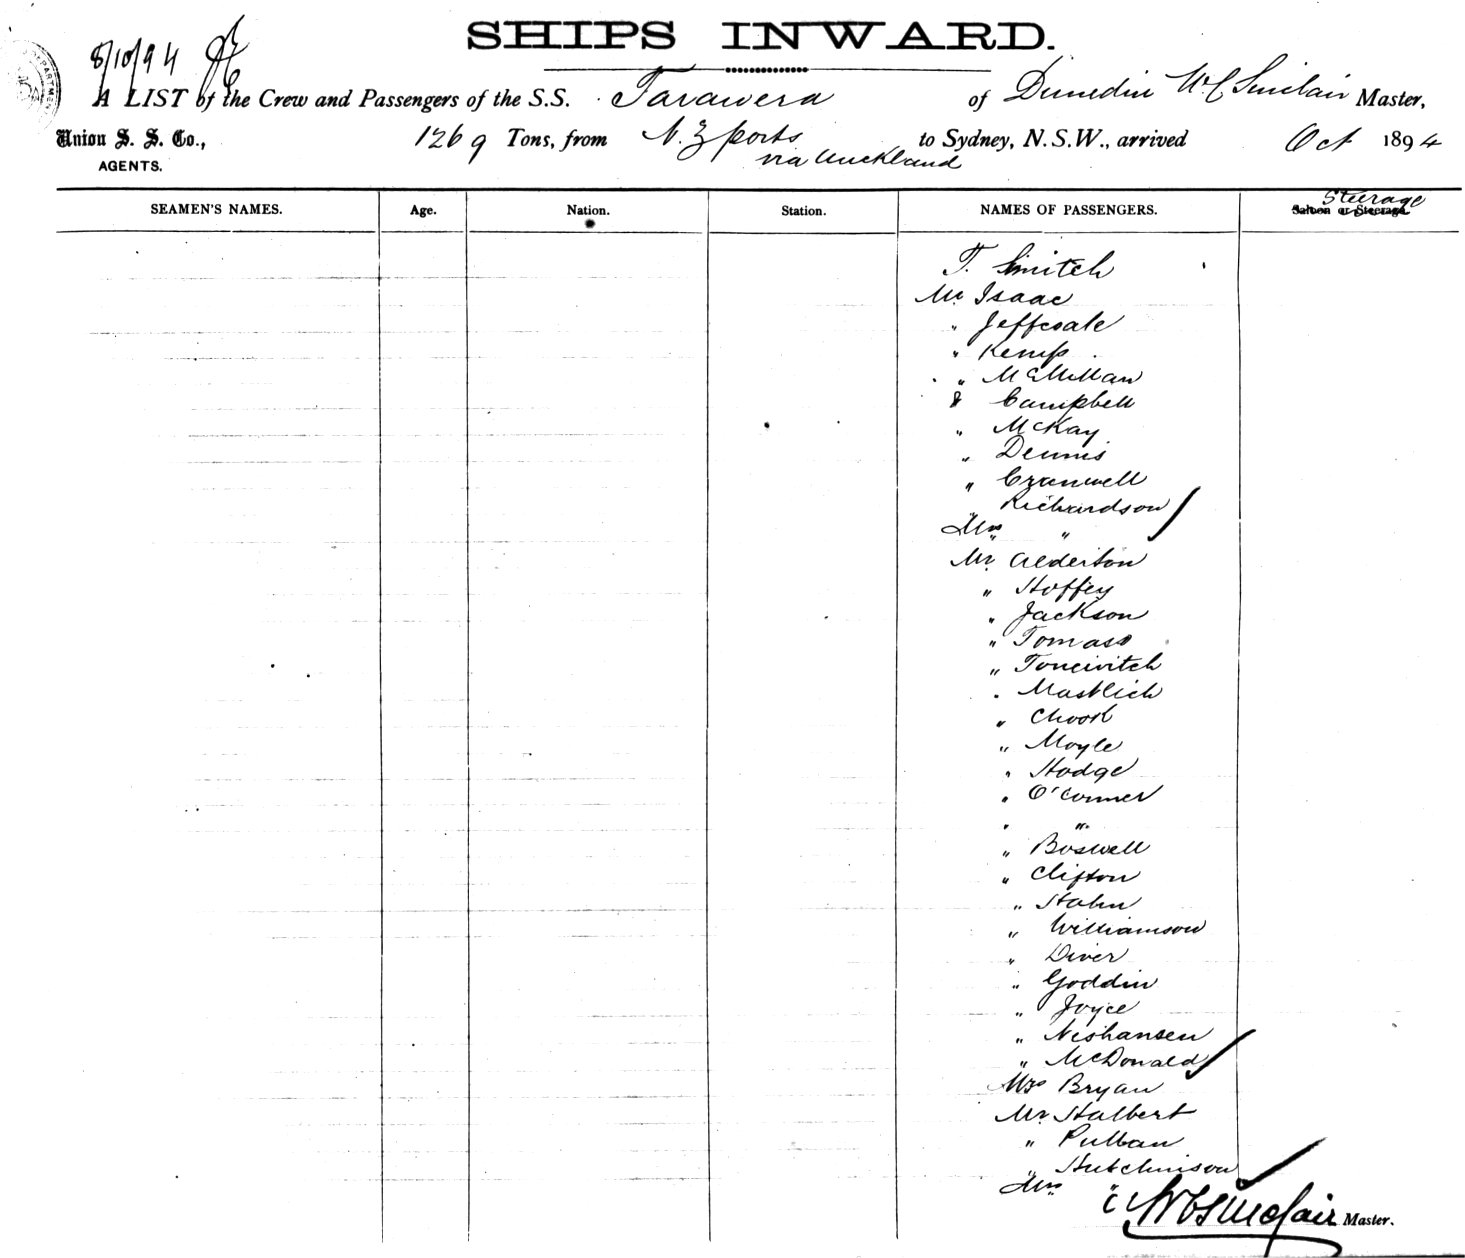 SHIPS INWARD.
8/10/94
A LIST of the Crew and Passengers of the S.S. Tarawera of Dunedin W C Sinclair Master,
Union S. S. Co., 1269 Tons, from N. Z ports to Sydney, N.S.W., arrived Oct 1894
via Auckland
AGENTS.
SEAMEN'S NAMES. Age. Nation. Station. NAMES OF PASSENGERS. Saloon or Steerage Steerage
T. Smitch
Mr Isaac
" Jeffcoate
" Kemp
" McMillan
& Campbell
" McKay
" Dennis
" Cranwell
Richardson
Mrs "
Mr Alderton
" Hoffey
" Jackson
" Tomass
" Toncivitch
" Mastlich
" Chook
" Moyle
" Hodge
" O'Conner
" "
" Boswell
" Clifton
" Hahn
" Williamson
" Diver
" Goddin
" Joyce
" Nishansen
" McDonald
Mrs Bryan
Mr Halbert
" Pullan
" Hutchinson
Mrs "
W C Sinclair Master.